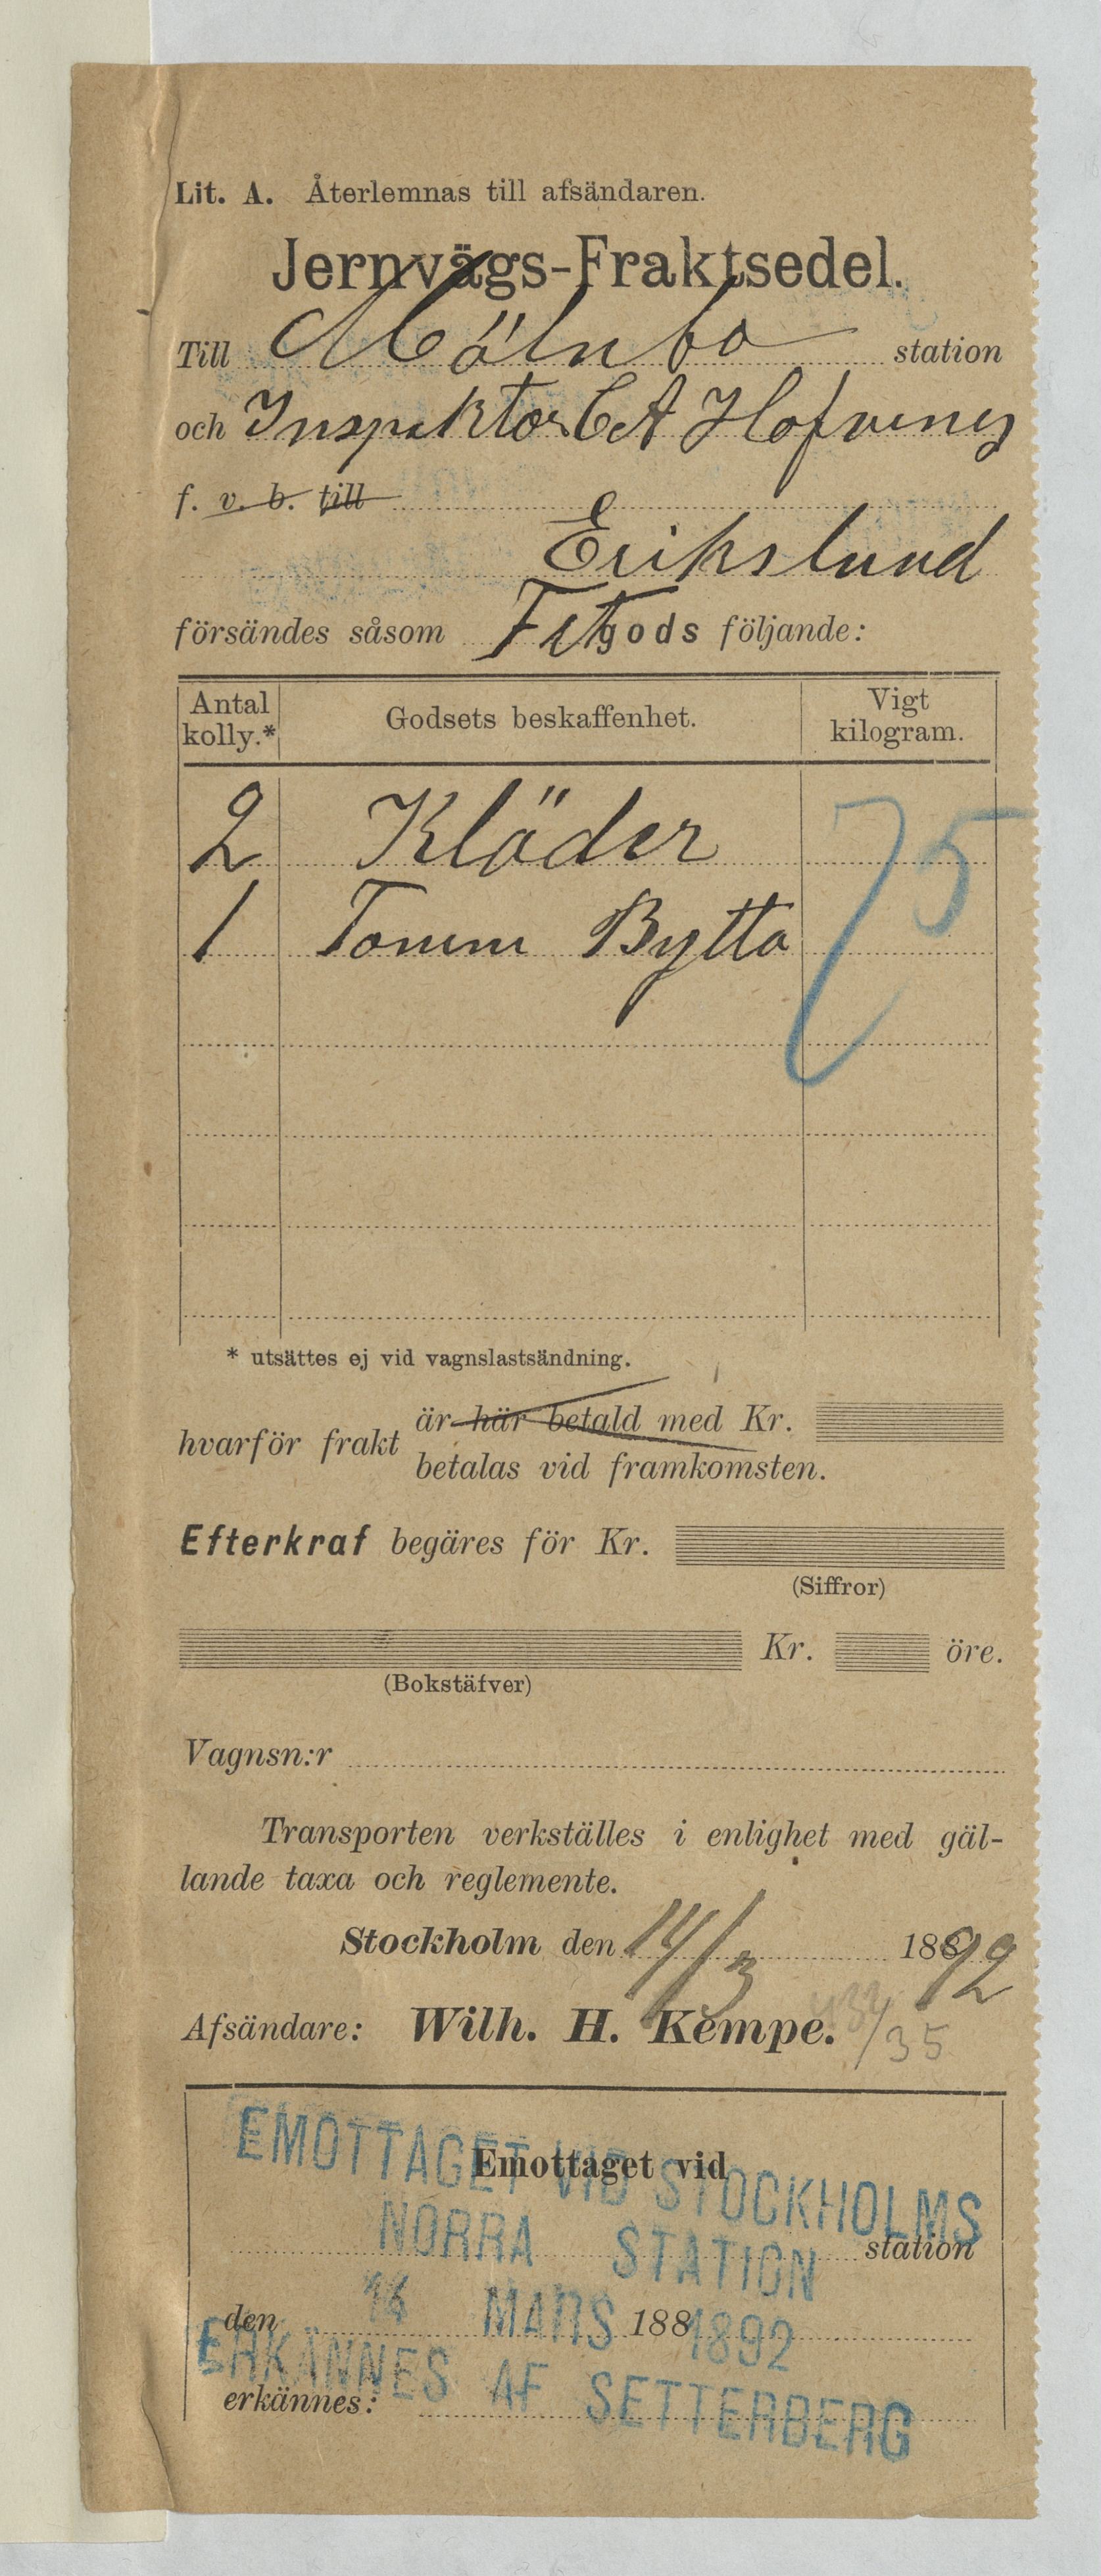 Lit. A. Återlemnas till afsändaren.
Jernvägs-Fraktsedel.
Till Mölnbo station
och Inspektor C A Hofving
f. v. b. till
Erikslund
försändes såsom Fetgods följande:
Antal kolly.* Godsets beskaffenhet. Vigt kilogram.
2 Kläder 75
1 Tomm Bytta
* utsättes ej vid vagnslastsändning.
hvarför frakt är här betald med Kr.
betalas vid framkomsten.
Efterkraf begäres för Kr.
(Siffror)
Kr. öre.
(Bokstäfver)
Vagnsn:r
Transporten verkställes i enlighet med gäl-
lande taxa och reglemente.
Stockholm den 14/3 1892
Afsändare: Wilh. H. Kempe.
/35
Emottaget vid
EMOTTAGET VID STOCKHOLMS
NORRA STATION
station
den 188
MARS 1892
erkännes:
ERKÄNNES AF SETTERBERG